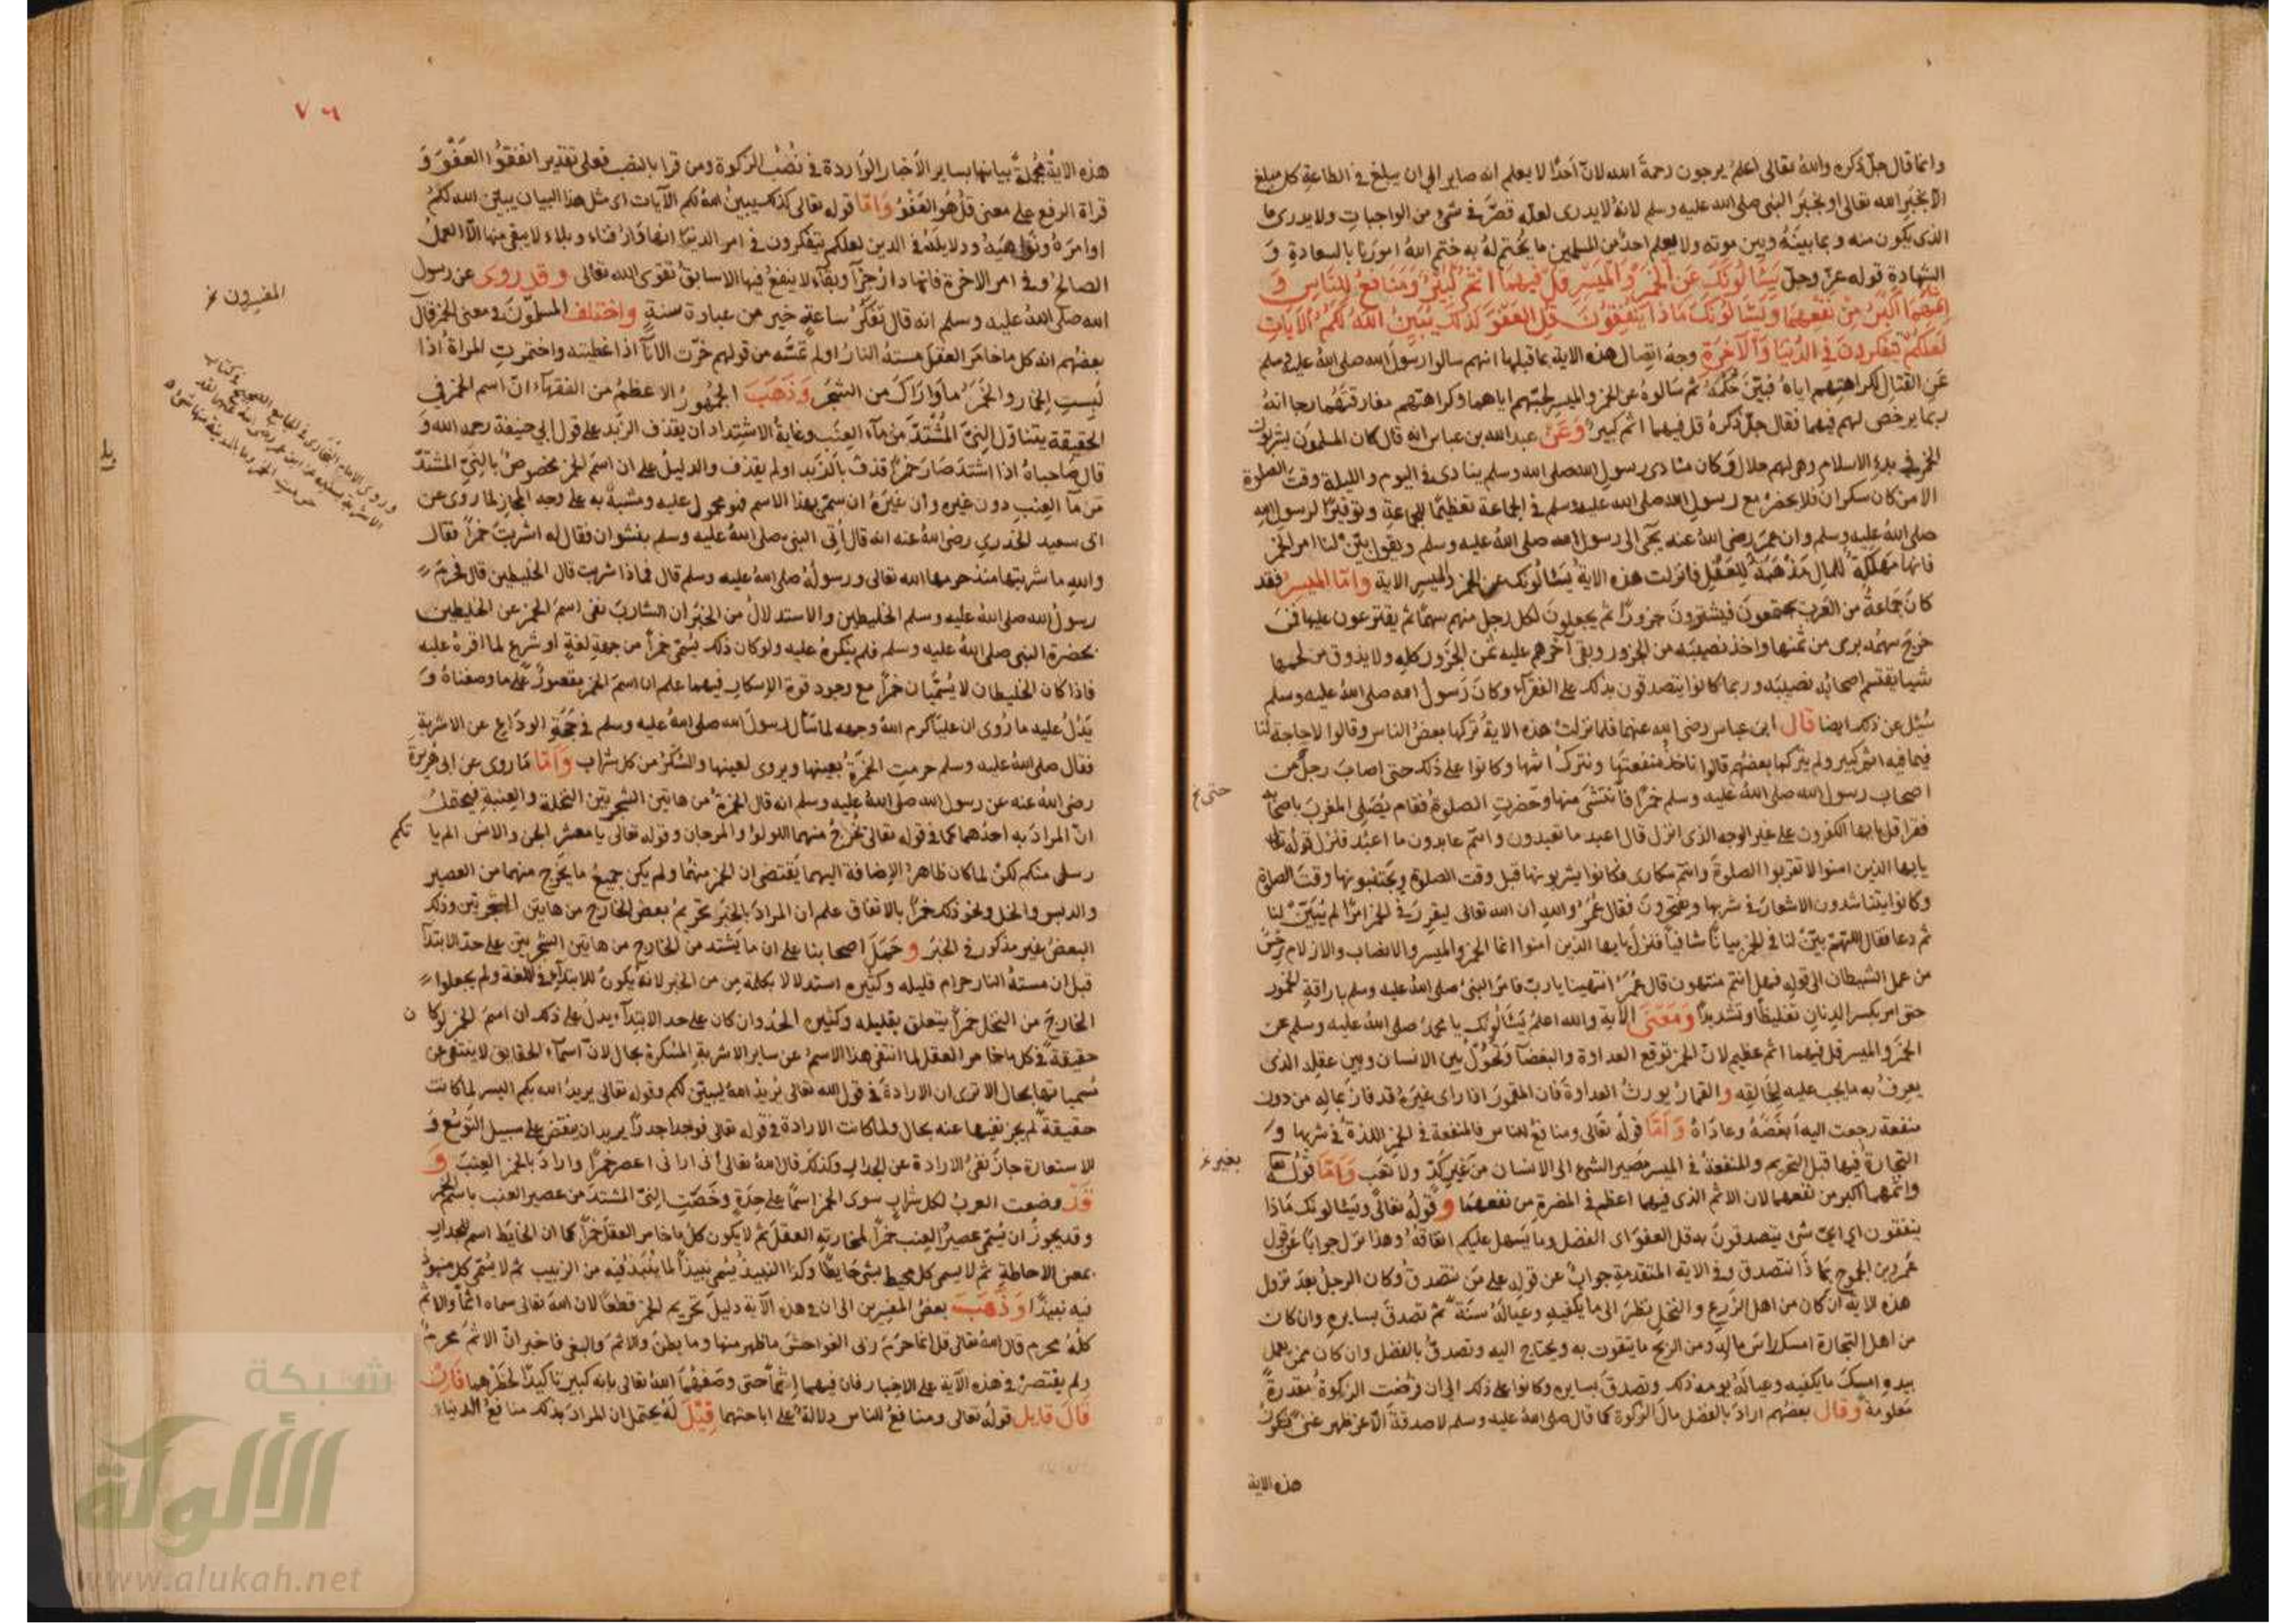 وانما قال جلّ ذكره والله تعالى اعلم يرجون رحمة الله لانّ احدًا لا يعلم انه صاير الى ان يبلغ فى الطاعة كل مبلغ
الا بخبر الله تعالى او بخبر النبى صلى الله عليه وسلم لانه لا يدرى لعله قصّر فى شىء من الواجبات ولا يدرى ما
الذى يكون منه وبما بينه وبين موته ولا يعلم احد من المسلمين ما يختم له به ختم الله امورنا بالسعادة و
الشهادة قوله عزّ وجلّ يسئالونك عن الخمر والميسر قل فيهما اثم كبير ومنافع للناس و
اثمهما اكبر من نفعهما ويسئالونك ماذا ينفقون قل العفو كذلك يبين الله لكم الآيات
لعلكم تتفكرون فى الدنيا والآخرة وجه اتصال هذه الاية بما قبلها انهم سالوا رسول الله صلى الله عليه وسلم
عن القتال لكراهتهم اياه فبيّن حكمه ثم سالوه عن الخمر والميسر لحبّهم اياهما وكراهتهم مفارقتهما رجا انه
ربما يرخص لهم فيهما فقال جلّ ذكره قل فيهما اثم كبير وعن عبد الله بن عباس انه قال كان المسلمون يشربون
الخمر فى بدء الاسلام وهى لهم حلال وكان منادى رسول الله صلى الله وسلم ينادى فى اليوم والليلة وقت الصلوة
الا من كان سكران فلا يحضر مع رسول الله صلى الله عليه وسلم فى الجماعة تعظيمًا للجماعة وتوقيرًا لرسول الله
صلى الله عليه وسلم وان عمر رضى الله عنه يجى الى رسول الله صلى الله عليه وسلم ويقول بيّن لنا امر الخمر
فانها مهلكة للمال مذهبة للعقل فانزلت هذه الاية يسئالونك عن الخمر والميسر الاية وامّا الميسر فقد
كان جماعة من العرب يجتمعون فيشترون جزورًا ثم يجعلون لكل رجل منهم سهمًا ثم يقترعون عليها فمن
خرج سهمه برى من ثمنها واخذ نصيبه من الجزور وبقى آخرهم عليه ثمن الجزور كله ولا يذوق من لحمها
شيا يقتسم اصحابه نصيبه وربما كانوا يتصدقون بذلك على الفقرآء وكان رسول الله صلى الله عليه وسلم
سُئل عن ذلك ايضا قال ابن عباس رضى الله عنهما فلما نزلت هذه الاية تركها بعض الناس وقالوا لا حاجة لنا
فيما فيه اثم كبير ولم يتركها بعضهم قالوا ناخذ منفعتها ونترك اثمها وكانوا على ذلك حتى اصاب رجل من
اصحاب رسول الله صلى الله عليه وسلم خمرًا فانتشى منها وحضرت الصلوة فقام يصلى المغرب باصحابه
حتى
فقرا قل يايها الكفرون على غير الوجه الذى انزل قال اعبد ما تعبدون وانتم عابدون ما اعبد فنزل قوله تعالى
يايها الذين امنوا لا تقربوا الصلوة وانتم سكارى فكانوا يشربونها قبل وقت الصلوة ويجتنبونها وقت الصلوة
وكانوا يتناشدون الاشعار فى شربها ويفتخرون فقال عمر والله ان الله تعالى ليقرب فى الخمر امرًا لم يبيّن لنا
ثم دعا فقال اللهم بيّن لنا فى الخمر بيانًا شافيًا فنزل يايها الذين امنوا انما الخمر والميسر والانصاب والازلام رجس
من عمل الشيطان الى قوله فهل انتم منتهون قال عمر انتهينا يا ربّ فامر النبى صلى الله عليه وسلم باراقة الخمور
حتى امر بكسر الدنان تغليظًا وتشديدًا ومعنى الآية والله اعلم يسئالونك يا محمد صلى الله عليه وسلم عن
الخمر والميسر قل فيهما اثم عظيم لان الخمر توقع العداوة والبغضآ وتحول بين الانسان وبين عقله الذى
يعرف به ما يجب عليه لخالقه والقمار يورث العداوة فان المقمور اذا راى غيره قد فاز بماله من دون
منفعة رجعت اليه ابغضه وعاداه وامّا قوله تعالى ومنافع للناس فالمنفعة فى الخمر اللذة فى شربها و
التجارة فيها قبل التحريم والمنفعة فى الميسر مصير الشىء الى الانسان من غير كدّ ولا تعب وامّا قوله تعالى
بغير
واثمهما اكبر من نفعهما لان الاثم الذى فيهما اعظم فى المضرة من نفعهما وقوله تعالى ويسئالونك ماذا
ينفقون اى اىّ شىء يتصدقون به قل العفو اى الفضل وما يسهل عليكم انفاقه وهذا نزل جوابًا عن قول
عمرو بن الجموح بما ذا نتصدق وفى الاية المتقدمة جواب عن قوله على من نتصدق وكان الرجل بعد نزول
هذه الاية ان كان من اهل الزرع والنخل ينظر الى ما يكفيه وعياله سنة ثم تصدق بسايره وان كان
من اهل التجارة امسك راس ماله ومن الربح ما يتقوت به ويحتاج اليه وتصدق بالفضل وان كان ممن يعمل
بيده امسك ما يكفيه وعياله يومه ذلك وتصدق بسايره وكانوا على ذلك الى ان فرضت الزكوة مقدرة
معلومة وقال بعضهم اراد بالفضل مال الزكوة كما قال صلى الله عليه وسلم لا صدقة الا عن ظهر غنى فتكون
هذه الاية
٧٦
هذه الاية مجملة بيانها بساير الاخبار الواردة فى نُصُب الزكوة ومن قرا بالنصب فعلى تقدير انفقوا العفو و
قراة الرفع على معنى قل هو العفو وامّا قوله تعالى كذلك يبين الله لكم الآيات اى مثل هذا البيان يبيّن الله لكم
اوامره ونواهيه ودلايله فى الدين لعلكم تتفكرون فى امر الدنيا انها دار فناء وبلاء لا يبقى منها الا العمل
الصالح وفى امر الاخرة فانها دار جزآ وبقآء لا ينفع فيها الا سابق تقوى الله تعالى وقد روى عن رسول
الله صلى الله عليه وسلم انه قال تفكّر ساعة خير من عبادة سنة واختلف المسلمون فى معنى الخمر فقال
المفسرون
بعضهم انه كل ما خامر العقل مسته النار او لم تمسّه من قولهم خمّرت الاناآ اذا غطيته واختمرت المراة اذا
لبست الخمار والخمر ما واراك من الشجر وذهب الجمهور الاعظم من الفقهآء انّ اسم الخمر فى
الحقيقة يتناول النىّ المشتدّ من مآء العنب وغاية الاشتداد ان يقذف الزبد على قول ابى حنيفة رحمه الله و
قال صاحباه اذا اشتدّ صار خمرًا قذف بالزبد او لم يقذف والدليل على ان اسم الخمر مخصوص بالنىّ المشتدّ
من مآ العنب دون غيره وان غيره ان سمى بهذا الاسم فهو محمول عليه ومشبه به على وجه المجاز لما روى عن
ابى سعيد الخدرى رضى الله عنه انه قال أُتى النبى صلى الله عليه وسلم بنشوان فقال له اشربت خمرًا فقال
والله ما شربتها منذ حرمها الله تعالى ورسوله صلى الله عليه وسلم قال فماذا شربت قال الخليطين قال فحرم
رسول الله صلى الله عليه وسلم الخليطين والاستدلال من الخبر ان الشارب نفى اسم الخمر عن الخليطين
بحضرة النبى صلى الله عليه وسلم فلم ينكره عليه ولو كان ذلك يسمّى خمرًا من جهة لغة او شرع لما اقره عليه
فاذا كان الخليطان لا يسمّيان خمرًا مع وجود قوة الاسكار فيهما علم ان اسم الخمر مقصور على ما وصفناه و
يدلّ عليه ما رُوى ان عليّا كرم الله وجهه لما سأل رسول الله صلى الله عليه وسلم فى حجة الوداع عن الاشربة
فقال صلى الله عليه وسلم حرمت الخمرة بعينها ويروى لعينها والسُّكْر من كل شراب وامّا ما روى عن ابى هريرة
رضى الله عنه عن رسول الله صلى الله عليه وسلم انه قال الخمرة من هاتين الشجرتين النخلة والعنبة فيحتمل
انّ المراد به احدهما كما فى قوله تعالى يخرج منهما اللولو والمرجان وقوله تعالى يا معشر الجن والانس الم يا تكم
رسل منكم لكن لما كان ظاهر الاضافة اليهما يقتضى ان الخمر منهما ولم يكن جميع ما يخرج منهما من العصير
والدبس والخل ونحو ذلك خمرًا بالاتفاق علم ان المراد بالخبر تحريم بعض الخارج من هاتين الشجرتين وذلك
البعض غير مذكور فى الخبر وحمل اصحابنا على ان ما يشتد من الخارج من هاتين الشجرتين على حدّ الابتدآ
قبل ان مسته النار حرام قليله وكثيره استدلالا بكلمة مِن من الخبر لانه يكون للابتدآء فى اللغة ولم يجعلوا
الخارج من النخل خمرًا يتعلق بقليله وكثيره الحدّ وان كان على حد الابتدآء ويدل على ذلك ان اسم الخمر لو كان
حقيقة فى كل ما خامر العقل لما انتفى هذا الاسم عن ساير الاشربة المسكرة بحال لانّ اسمآء الحقايق لا ينتفى عن
مسمياتها بحال الا ترى ان الارادة فى قول الله تعالى يريد الله ليبيّن لكم وقوله تعالى يريد الله بكم اليسر لما كانت
حقيقة لم يجز نفيها عنه بحال ولما كانت الارادة فى قوله تعالى فوجدا جدارًا يريد ان ينقض على سبيل التوسّع و
الاستعارة جاز نفى الارادة عن الجدار وكذلك قال الله تعالى انى ارانى اعصر خمرًا واراد بالخمر العنب و
قد وضعت العرب لكل شراب سوى الخمر اسمًا على حدة وخصّت النىّ المشتدّ من عصير العنب باسم الخمر
وقد يجوز ان يسمّى عصير العنب خمرًا لمخامرته العقل ثم لا يكون كل ما خامر العقل خمرًا كما ان الحايط اسم للجدار
بمعنى الاحاطة ثم لا يسمى كل محيط بشىء حايطًا وكذا النبيذ يسمى نبيذًا لما ينبذ فيه من الزبيب ثم لا يسمّى كل منبوذ
فيه نبيذًا وذهب بعض المفسرين الى ان فى هذه الآية دليل تحريم الخمر قطعًا لان الله تعالى سماه اثمًا والاثم
كله محرم قال الله تعالى قل انما حرم ربى الفواحش ما ظهر منها وما بطن والاثم والبغى فاخبر انّ الاثم محرم
ولم يقتصر فى هذه الآية على الاخبار فان فيهما اثمًا حتى وصفهما الله تعالى بانه كبير تاكيدًا لحظرهما فان
قال قايل قوله تعالى ومنافع للناس دلالة على اباحتهما قيل له يحتمل ان المراد بذلك منافع الدنيا
وروى الامام البخارى فى الجامع الصحيح فى كتاب
الاشربة بسنده عن ابن عمر رضى الله عنهما لقد
حرمت الخمر وما بالمدينة منها شىء
شبكة
الألوكة
www.alukah.net